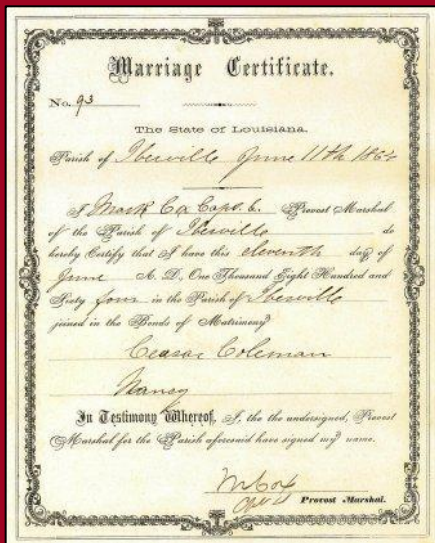 Marriage Certificate.
No. 93
The State of Louisiana.
Parish of Iberville June 11th 1864
I Mark Cox Capt. & Provost Marshal
of the Parish of Iberville do
hereby Certify that I have this eleventh day of
June A. D., One Thousand Eight Hundred and
Sixty four in the Parish of Iberville
joined in the Bonds of Matrimony
Ceasar Coleman
Nancy
In Testimony Whereof, I, the the undersigned, Provost
Marshal for the Parish aforesaid have signed my name.
M Cox
Provost Marshal.